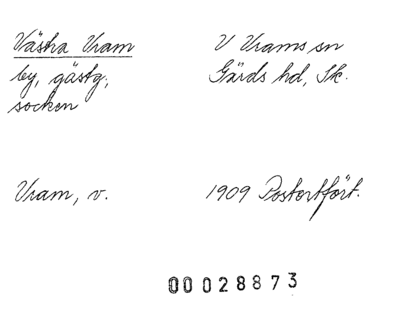 Västra Vram
by, gästg,
socken
V Vrams sn
Gärds hd, Sk.
Vram, v.
1909 Postortfört.
00028873